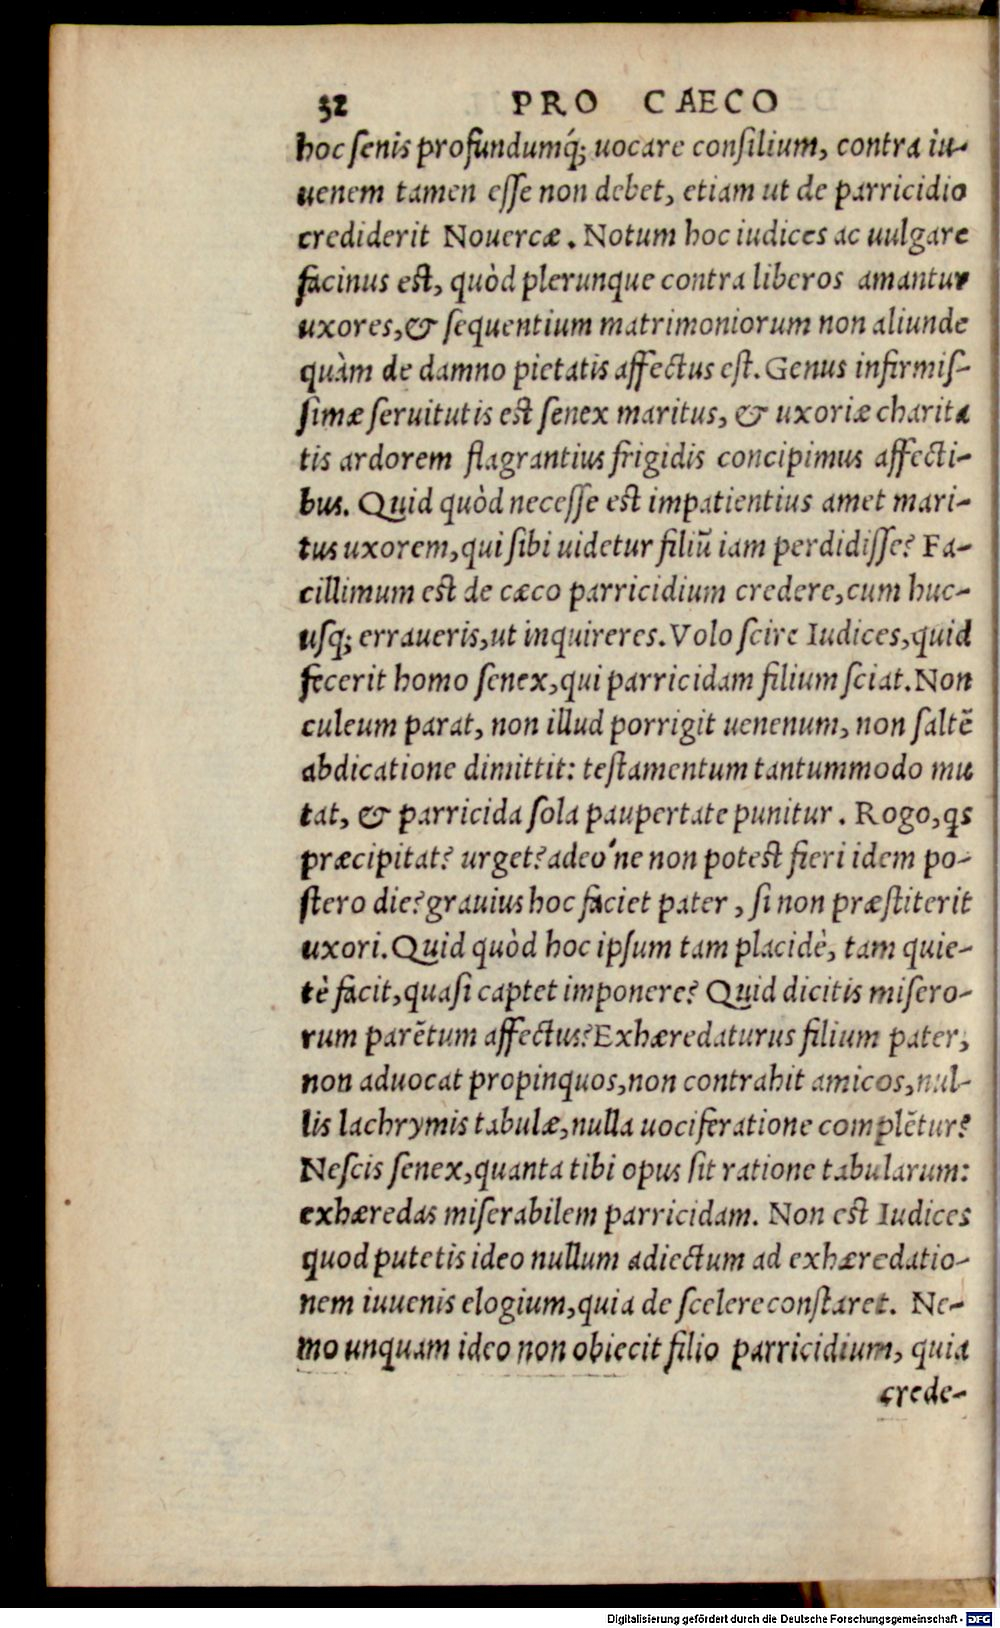 32 PRO CAECO
hoc ſenis profundumq́; uocare conſilium, contra iu-
uenem tamen eſſe non debet, etiam ut de parricidio
crediderit Nouercæ. Notum hoc iudices ac uulgare
facinus est, quòd plerunque contra liberos amantur
uxores, & ſequentium matrimoniorum non aliunde
quàm de damno pietatis affectus eſt. Genus infirmiſ-
ſimæ ſeruitutis est ſenex maritus, & uxoriæ charita
tis ardorem flagrantius frigidis concipimus affecti-
bus. Quid quòd neceſſe est impatientius amet mari-
tus uxorem, qui ſibi uidetur filiũ iam perdidiſſe? Fa-
cillimum est de cæco parricidium credere, cum huc-
uſq; erraueris, ut inquireres. Volo ſcire Iudices, quid
fecerit homo ſenex, qui parricidam filium ſciat. Non
culeum parat, non illud porrigit uenenum, non ſaltẽ
abdicatione dimittit: teſtamentum tantummodo mu
tat, & parricida ſola paupertate punitur. Rogo, qs
præcipitat? urget? adeo'ne non potest fieri idem po-
ſtero die? grauius hoc faciet pater, ſi non præſtiterit
uxori. Quid quòd hoc ipſum tam placidè, tam quie-
tè facit, quaſi captet imponere? Quid dicitis miſero-
rum parẽtum affectus? Exhæredaturus filium pater,
non aduocat propinquos, non contrahit amicos, nul-
lis lachrymis tabulæ, nulla uociferatione complẽtur?
Neſcis ſenex, quanta tibi opus ſit ratione tabularum:
exhæredas miſerabilem parricidam. Non est Iudices
quod putetis ideo nullum adiectum ad exhæredatio-
nem iuuenis elogium, quia de ſcelere conſtaret. Ne-
mo unquam ideo non obiecit filio parricidium, quia
crede-
Digitalisierung gefördert durch die Deutsche Forschungsgemeinschaft - DFG